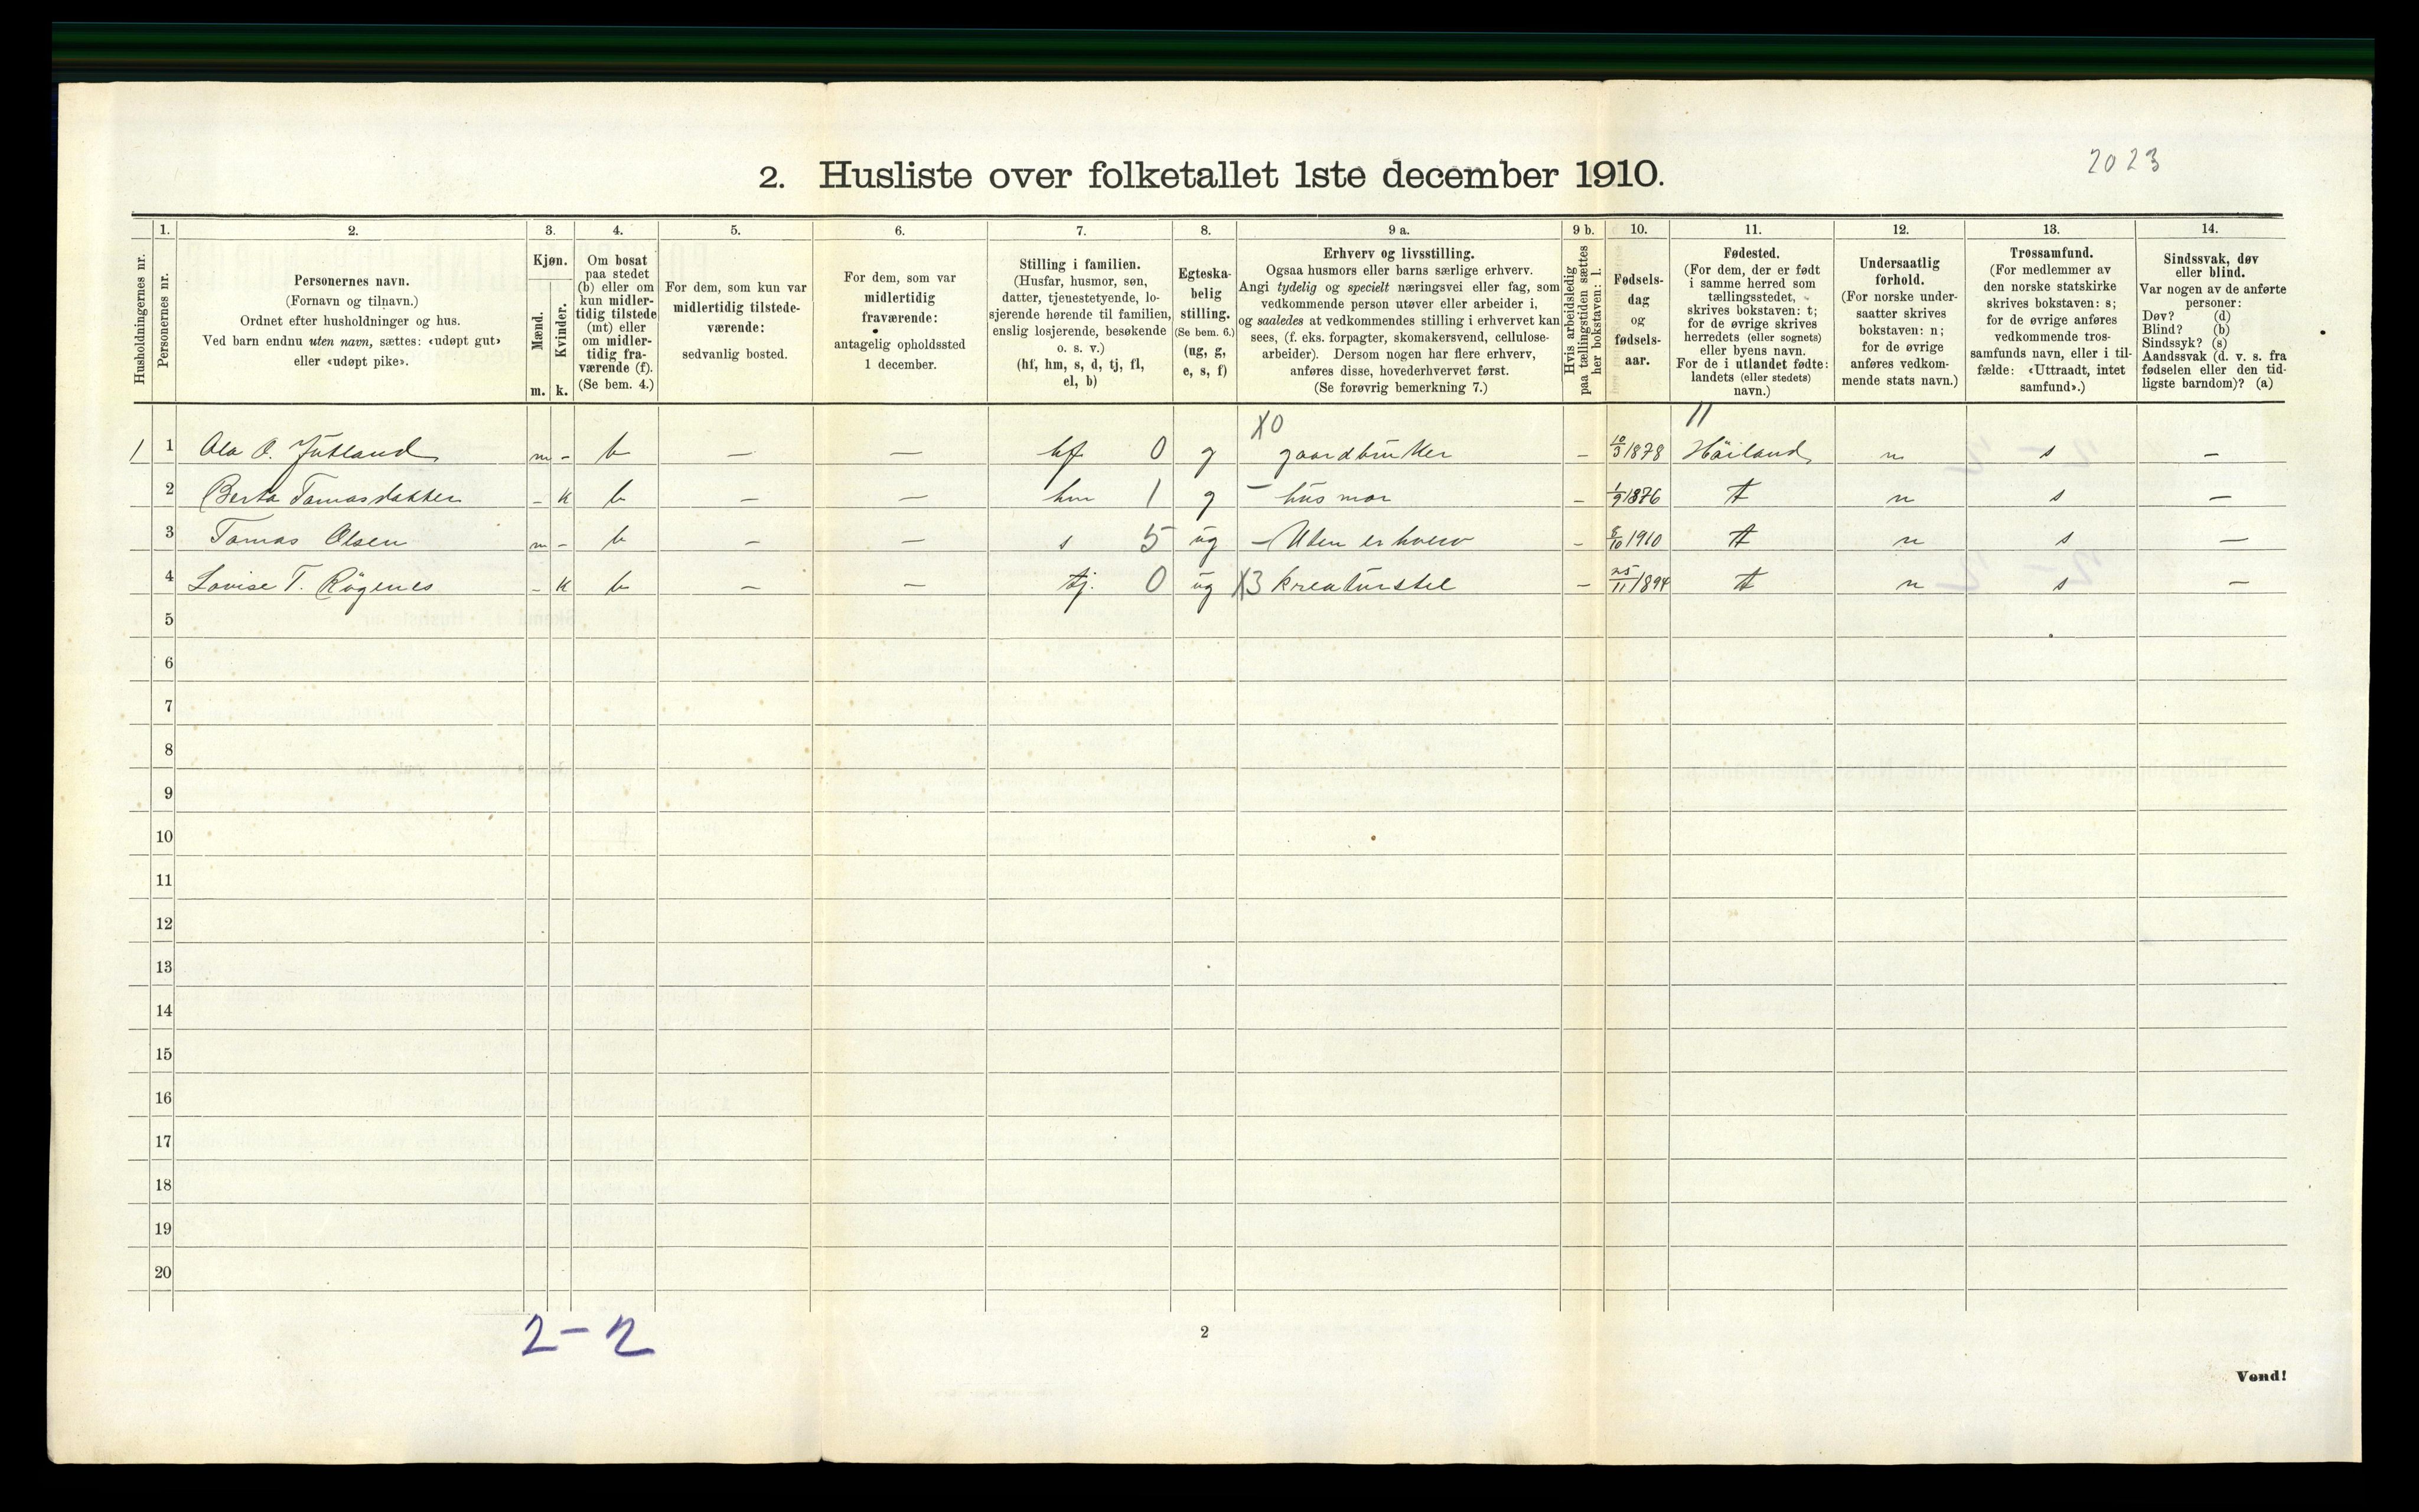 2023
2. Husliste over folketallet 1ste december 1910.
1. 2. 3. 4. 5. 6. 7. 8. 9 a. 9 b. 10. 11. 12. 13. 14.
Husholdningernes nr.
Personernes nr.
Personernes navn.
(Fornavn og tilnavn.)
Ordnet efter husholdninger og hus.
Ved barn endnu uten navn, sættes: «udøpt gut»
eller «udøpt pike».
Kjøn.
Mænd.
Kvinder.
m. k.
Om bosat
paa stedet
(b) eller om
kun midler-
tidig tilstede
(mt) eller
om midler-
tidig fra-
værende (f).
(Se bem. 4.)
For dem, som kun var
midlertidig tilstede-
værende:
sedvanlig bosted.
For dem, som var
midlertidig
fraværende:
antagelig opholdssted
1 december.
Stilling i familien.
(Husfar, husmor, søn,
datter, tjenestetyende, lo-
sjerende hørende til familien,
enslig losjerende, besøkende
o. s. v.)
(hf, hm, s, d, tj, fl,
el, b)
Egteska-
belig
stilling.
(Se bem. 6.)
(ug, g,
e, s, f)
Erhverv og livsstilling.
Ogsaa husmors eller barns særlige erhverv.
Angi tydelig og specielt næringsvei eller fag, som
vedkommende person utøver eller arbeider i,
og saaledes at vedkommendes stilling i erhvervet kan
sees, (f. eks. forpagter, skomakersvend, cellulose-
arbeider). Dersom nogen har flere erhverv,
anføres disse, hovederhvervet først.
(Se forøvrig bemerkning 7.)
Hvis arbeidsledig
paa tællingstiden sættes
her bokstaven: l.
Fødsels-
dag
og
fødsels-
aar.
Fødested.
(For dem, der er født
i samme herred som
tællingsstedet,
skrives bokstaven: t;
for de øvrige skrives
herredets (eller sognets)
eller byens navn.
For de i utlandet fødte:
landets (eller stedets)
navn.)
Undersaatlig
forhold.
(For norske under-
saatter skrives
bokstaven: n;
for de øvrige
anføres vedkom-
mende stats navn.)
Trossamfund.
(For medlemmer av
den norske statskirke
skrives bokstaven: s;
for de øvrige anføres
vedkommende tros-
samfunds navn, eller i til-
fælde: «Uttraadt, intet
samfund».)
Sindssvak, døv
eller blind.
Var nogen av de anførte
personer:
Døv? (d)
Blind? (b)
Sindssyk? (s)
Aandssvak (d. v. s. fra
fødselen eller den tid-
ligste barndom)? (a)
X0 11
1 1 Ola O. Jutland m - b — — hf 0 g gaardbruker - 10/3 1878 Höiland n s —
2 Berta Tomasdatter - k b — — hm 1 g - husmor - 1/9 1876 t n s —
3 Tomas Olsen m - b — — s 5 ug - Uten erhverv - 8/10 1910 t n s —
4 Lovise T. Rögenes - k b — — tj. 0 ug X3 kreaturstel - 25/11 1894 t n s —
5
6
7
8
9
10
11
12
13
14
15
16
17
18
19
20
2 - 2
2
Vend!